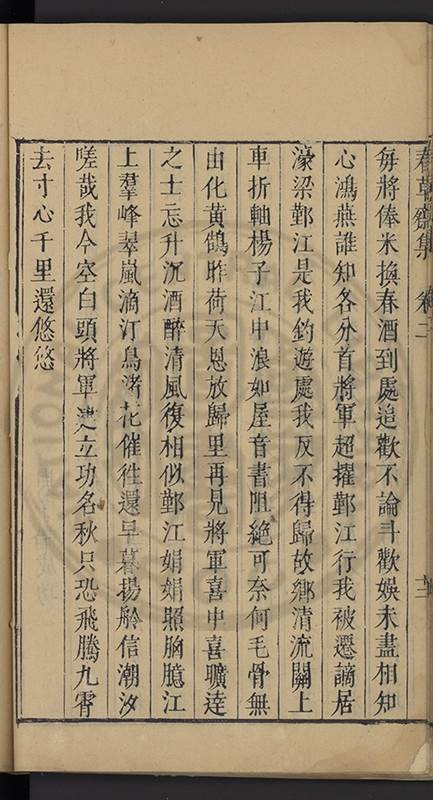 春草齋集 卷二 十二
每將俸米換春酒到處追歡不論斗歡娛未盡相知
心鴻燕誰知各分首將軍超擢鄞江行我被遷謫居
濠梁鄞江是我釣遊處我反不得歸故鄉清流關上
車折軸楊子江中浪如屋音書阻絶可奈何毛骨無
由化黃鵠昨荷天恩放歸里再見將軍喜中喜曠逹
之士忘升沉酒醉清風復相似鄞江娟娟照胸臆江
上羣峰翠嵐滴汀鳥渚花催徃還早暮揚舲信潮汐
嗟哉我今空白頭將軍建立功名秋只恐飛騰九霄
去寸心千里還悠悠